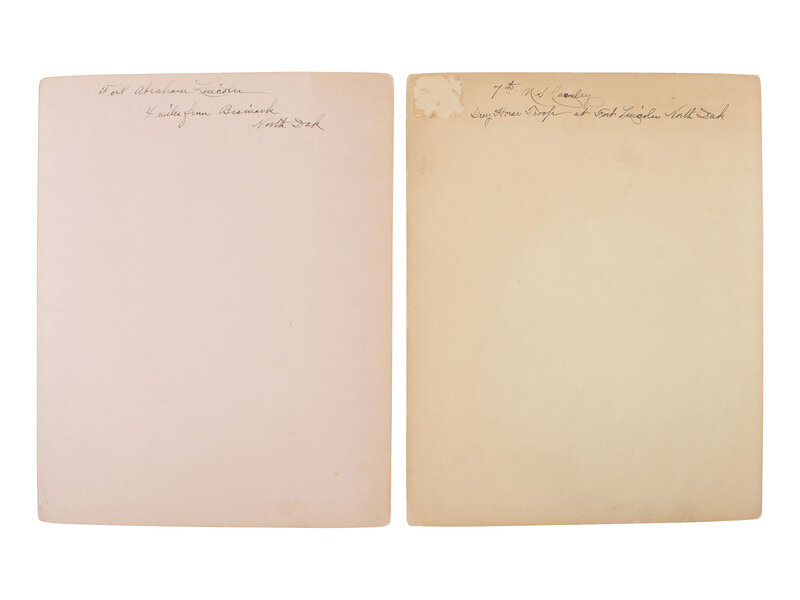 Fort Abraham Lincoln
4 miles from Bismark
North Dak.
7th U S Cavalry
Grey Horse Troop at Fort Lincoln North Dak